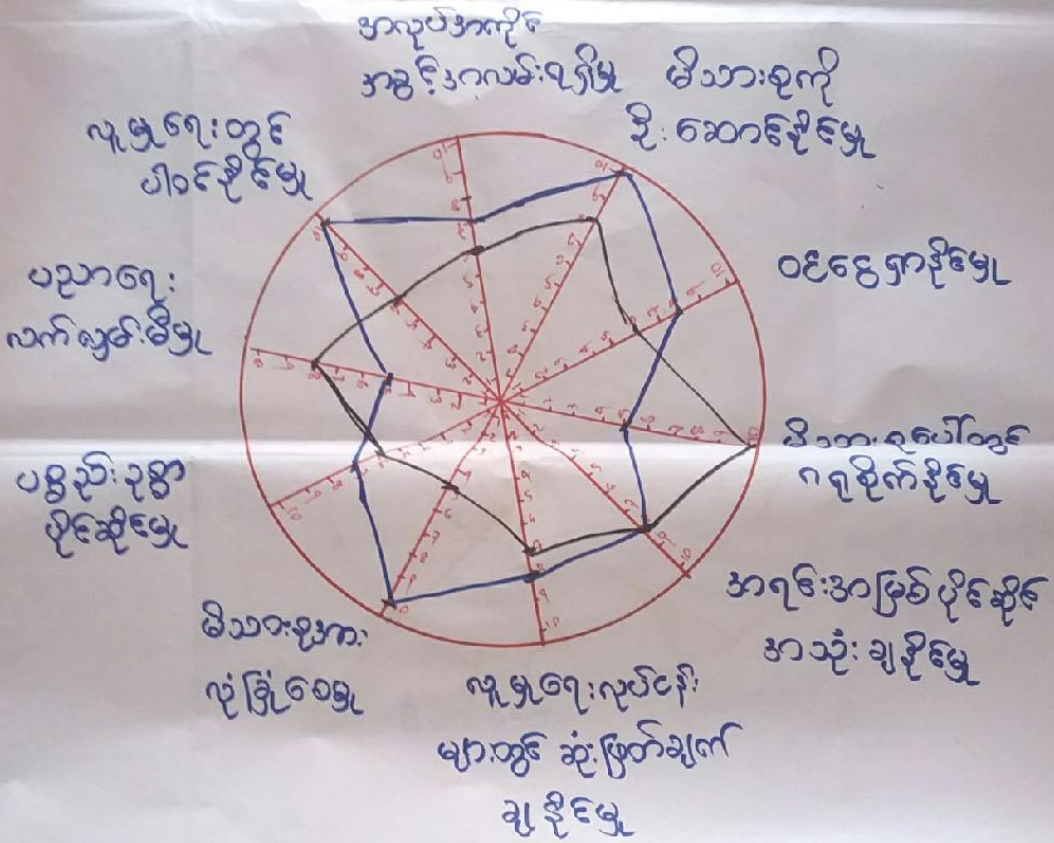 အလုပ်အကိုင်
အခွင့်အလမ်းရရှိမှု
မိသားစုကို
ဦးဆောင်နိုင်မှု
ဝင်ငွေရှာနိုင်မှု
မိသားစုပေါ်တွင်
ဂရုစိုက်နိုင်မှု
အရင်းအမြစ်ပိုင်ဆိုင်
အသုံးချနိုင်မှု
လူမှုရေးလုပ်ငန်း
များတွင် ဆုံးဖြတ်ချက်
ချနိုင်မှု
မိသားစုအား
လုံခြုံစေမှု
ပစ္စည်းဥစ္စာ
ပိုင်ဆိုင်မှု
ပညာရေး
လက်လှမ်းမီမှု
လူမှုရေးတွင်
ပါဝင်နိုင်မှု